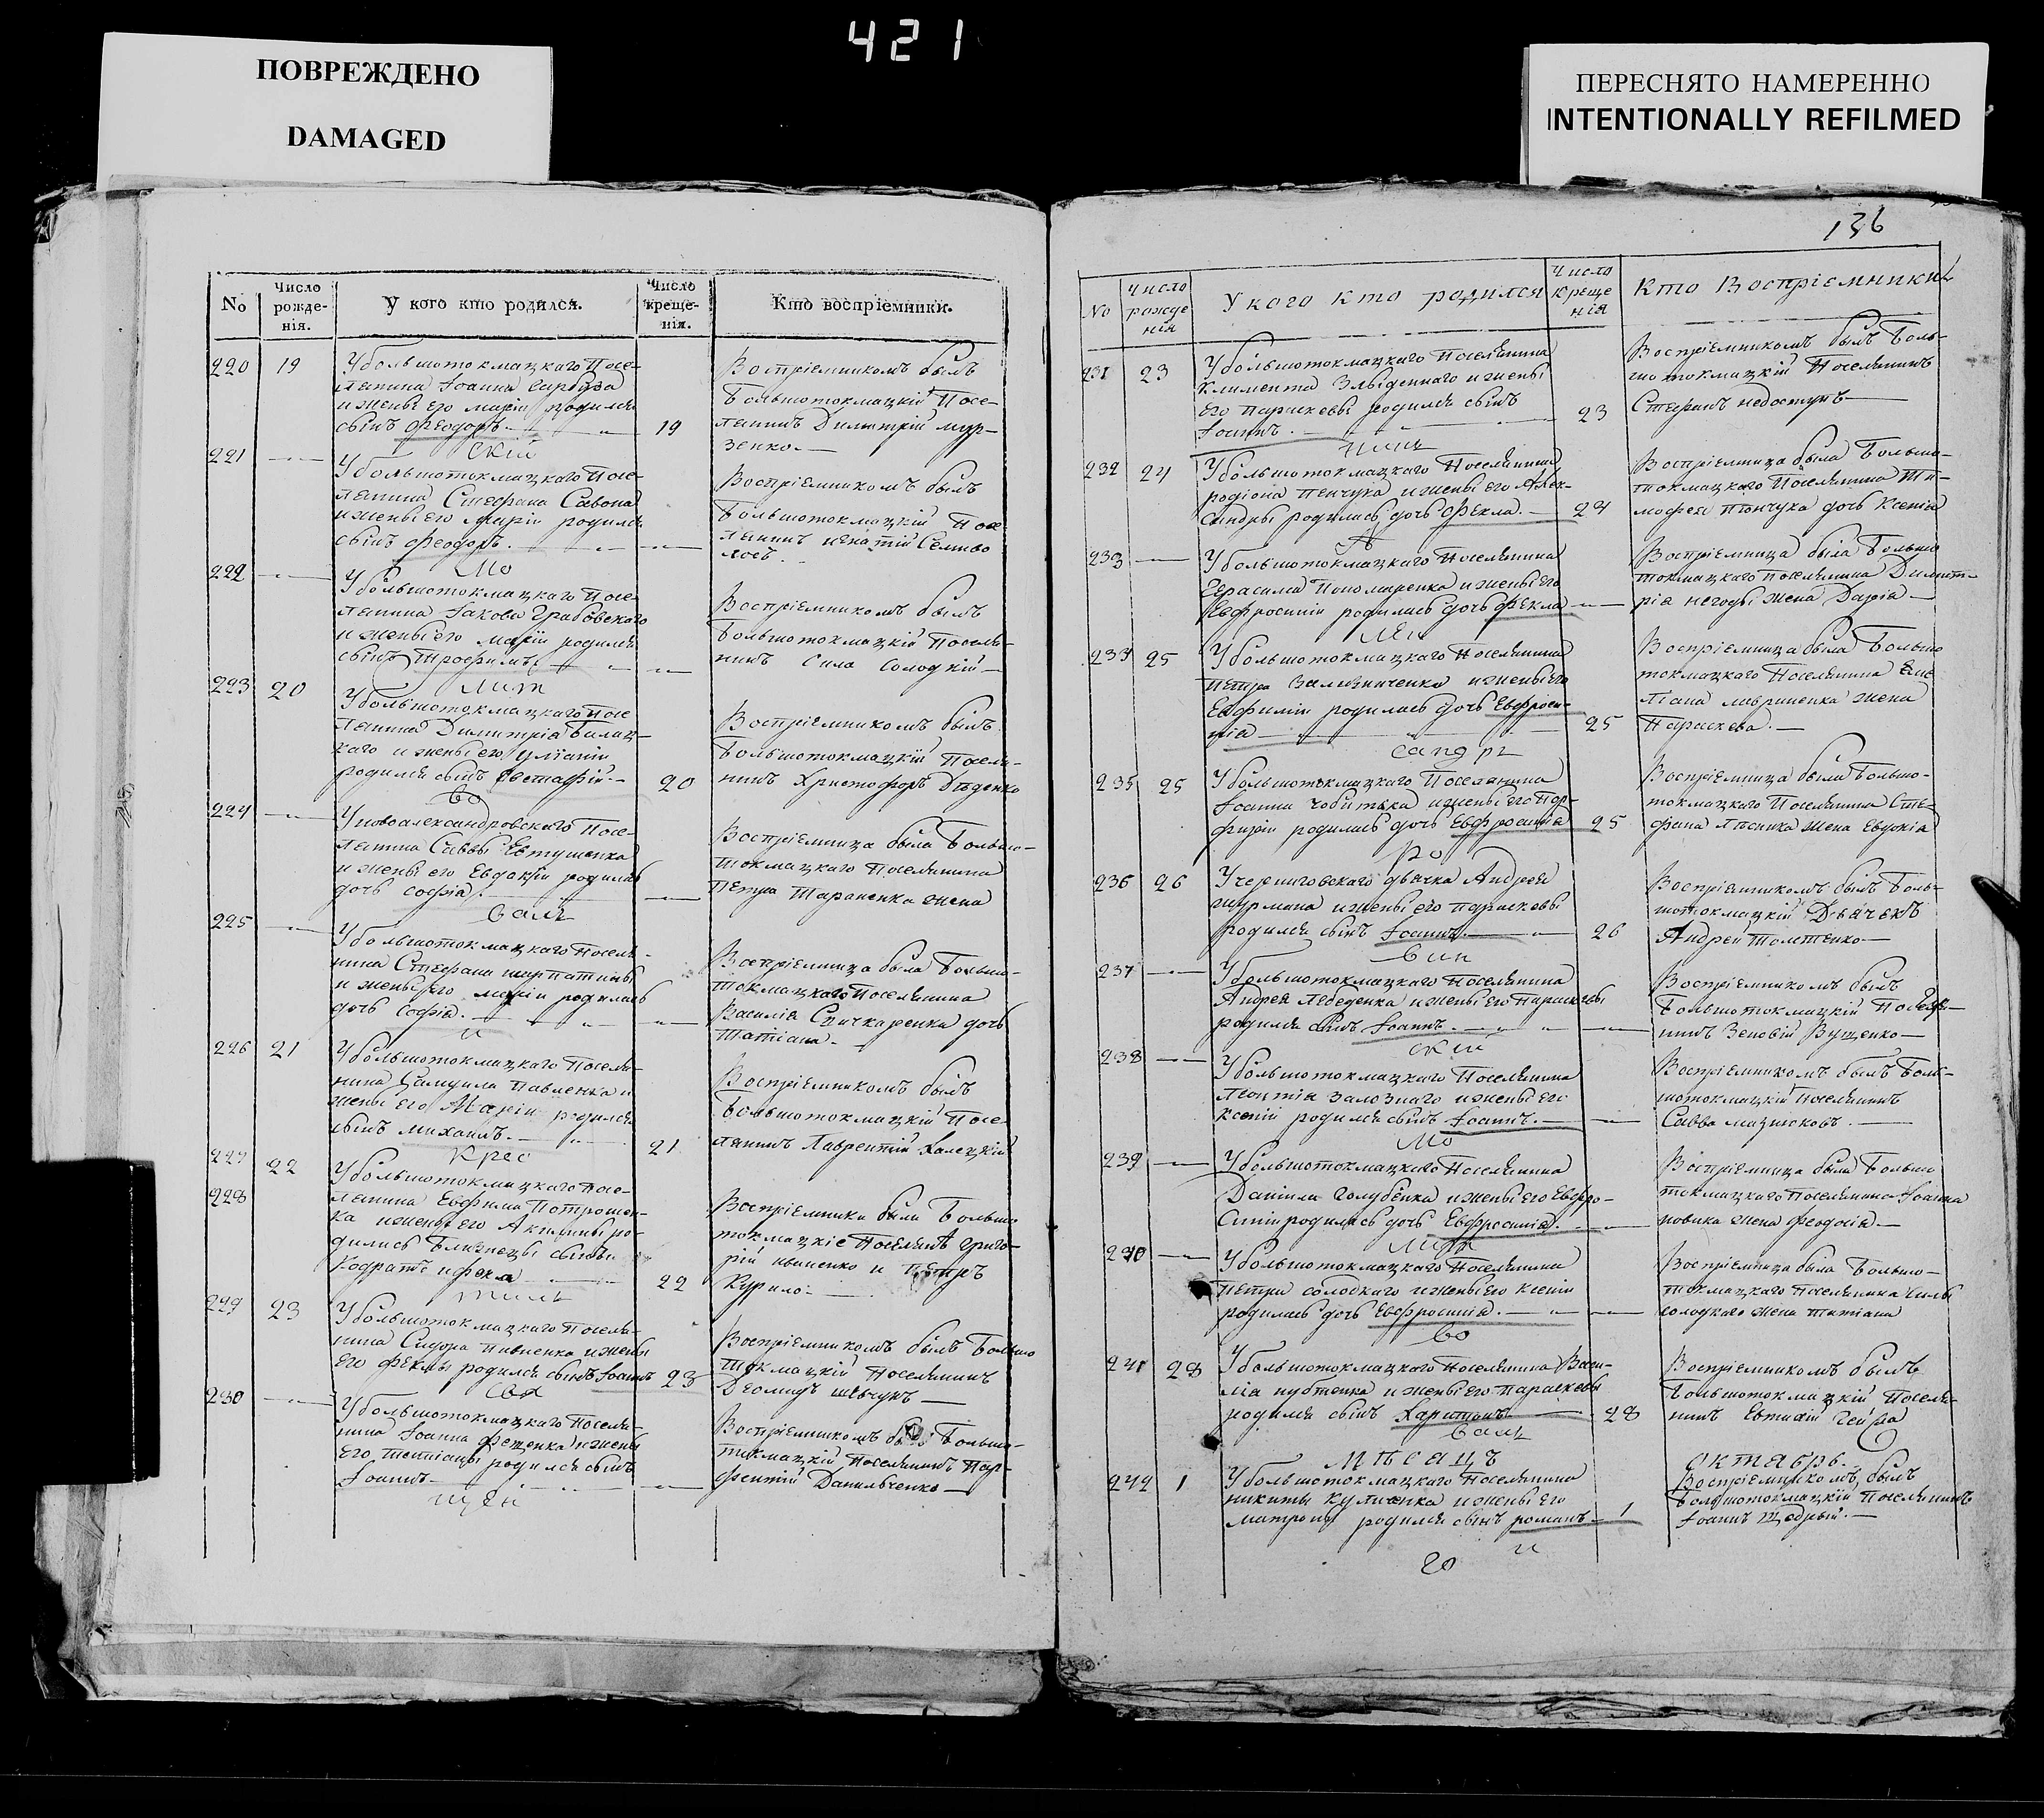 421
ПОВРЕЖДЕНО
DAMAGED
ПЕРЕСНЯТО НАМЕРЕННО
INTENTIONALLY REFILMED
136
No
Число рожде-нія.
У кого кто родился.
Число креще-нія.
Кто воспріемники.
220 19
У большотокмацкаго Посе-
лянина Іоанна
и жены его маріи родился
сынъ Феодоръ. 19
Воспріемникомъ былъ
Большотокмацкій Посе-
лянинъ Димитрій мур-
зенко.
скій
221
У большотокмацкаго Посе-
лянина Стефана Савона
и жены его маріи родился
сынъ Феодоръ.
Воспріемникомъ былъ
Большотокмацкій Посе
лянинъ игнатій Селиво
мо
222
У большотокмацкаго Посе-
лянина Іакова Грабовскаго
и жены его маріи родился
сынъ Трофимъ
Воспріемникомъ былъ
Большотокмацкій Поселя-
нинъ Сила Солодкій
лит
223 20
У большотокмацкаго Посе
лянина Димитрія Билиц-
каго и жены его Уліаніи
родился сынъ Евстафій. 20
Воспріемникомъ былъ
Большотокмацкій Поселя-
нинъ Христофоръ Дяденко
во
224
У новоалександровскаго Посе-
лянина Саввы Евтушенка
и жены его Евдокіи родилась
дочь софія.
Воспріемница была Большо-
токмацкаго Поселянина
Петра Тараненка жена
валъ
225
У большотокмацкаго Поселя-
нина Стефана шарпатины
и жены его маріи родилась
дочь софія.
Воспріемница была Большо-
токмацкаго Поселянина
Василія Спичкаренка дочь
Татіана.
и
226 21
У большотокмацкаго Поселя-
нина Самуила Павленка и
жены его Маріи родился
сынъ михаилъ. 21
Воспріемникомъ былъ
Большотокмацкій Посе-
лянинъ Лаврентій Халецкій
крес
227 22
228
У большотокмацкаго Посе-
лянина Евфима Потрошен-
ка и жены его Акилины ро-
дились Близнецы сынъ
Кодратъ и фекла 22
Воспріемники были Большо
токмацкіе Поселяне Григо-
рій иваненко и Петръ
Курило.
тилъ
229 23
У большотокмацкаго Поселя-
нина Сидора Павленка и жены
его Феклы родился сынъ Іоаннъ 23
Воспріемникомъ былъ Большо
токмацкій Поселянинъ
Деомидъ шевчукъ
свя
230
У большотокмацкаго Поселя-
нина Іоанна Фещенка и жены
его Татіаны родился сынъ
Іоаннъ
Воспріемникомъ былъ Большо-
токмацкій Поселянинъ Пар-
фентій Данильченко
щен
No
Число рожде нія
У кого кто родился
Число Креще нія
Кто Воспріемники
231 23
У большотокмацкаго Поселянина
Климента и жены
его Параскевы родился сынъ
Іоаннъ. 23
Воспріемникомъ былъ Боль-
шотокмацкій Поселянинъ
Стефанъ недоступъ
никъ
232 24
У большотокмацкаго Поселянина
родіона Пенчука и жены его Алек-
сандры родилась дочь Фекла. 24
Воспріемница была Большо-
токмацкаго Поселянина Ти-
мофея Пенчука дочь Ксенія
233
У большотокмацкаго Поселянина
Герасима Пономаренка и жены его
Евфросиніи родилась дочь Фекла
Воспріемница была Большо
токмацкаго поселянина Димит-
рія негоды жена Дарія
лек
234 25
У большотокмацкаго Поселянина
Петра Зализниченка и жены его
Евфиміи родилась дочь Евфроси-
нія 25
Воспріемница была Большо
токмацкаго Поселянина Еме
ліана лавриненка жена
Параскева.
сандръ
235 25
У большотокмацкаго Поселянина
Іоанна Чобитька и жены его Пор-
фиріи родилась дочь Евфросинія 25
Воспріемница была Большо-
токмацкаго Поселянина Сте-
фана Лясника жена Евдокія
ро
236 26
У черниговскаго дьячка Андрея
шурмана и жены его параскевы
родился сынъ Іоаннъ 26
Воспріемникомъ былъ Боль-
шотокмацкій Дьячекъ
Андрей Толстенко
вин
237
У большотокмацкаго Поселянина
Андрея Лебеденка и жены его Параскевы
родился сынъ Іоаннъ.
Воспріемникомъ былъ
Большотокмацкій Поселя-
нинъ Зеновій Вущенко
скій
238
У большотокмацкаго Поселянина
Леонтія Залознаго и жены его
Ксеніи родился сынъ Іоаннъ.
Воспріемникомъ былъ Боль-
шотокмацкій Поселянинъ
Савва мацюковъ.
мо
239
У большотокмацкаго Поселянина
Даніила Голубенка и жены его Евфро-
синіи родилась дочь Евфросинія.
Воспріемница была Большо
токмацкаго Поселянина Іоанна
новика жена феодосія
лит
240
У большотокмацкаго Поселянина
Петра солодкаго и жены его Ксеніи
родилась дочь Евфросинія.
Воспріемница была Большо-
токмацкаго Поселянина Силы
солодкаго жена татіана
во
241 28
У большотокмацкаго Поселянина Васи-
лія и жены его параскевы
родился сынъ Харитонъ 28
Воспріемникомъ былъ
Большотокмацкій Поселя-
нинъ Евтихій
валъ
Мѣсяцъ октябрь.
242 1
У большотокмацкаго Поселянина
никиты Куличенка и жены его
матроны родился сынъ романъ 1
Воспріемникомъ былъ
Большотокмацкій Поселянинъ
Іоаннъ Щедрый.
и
20